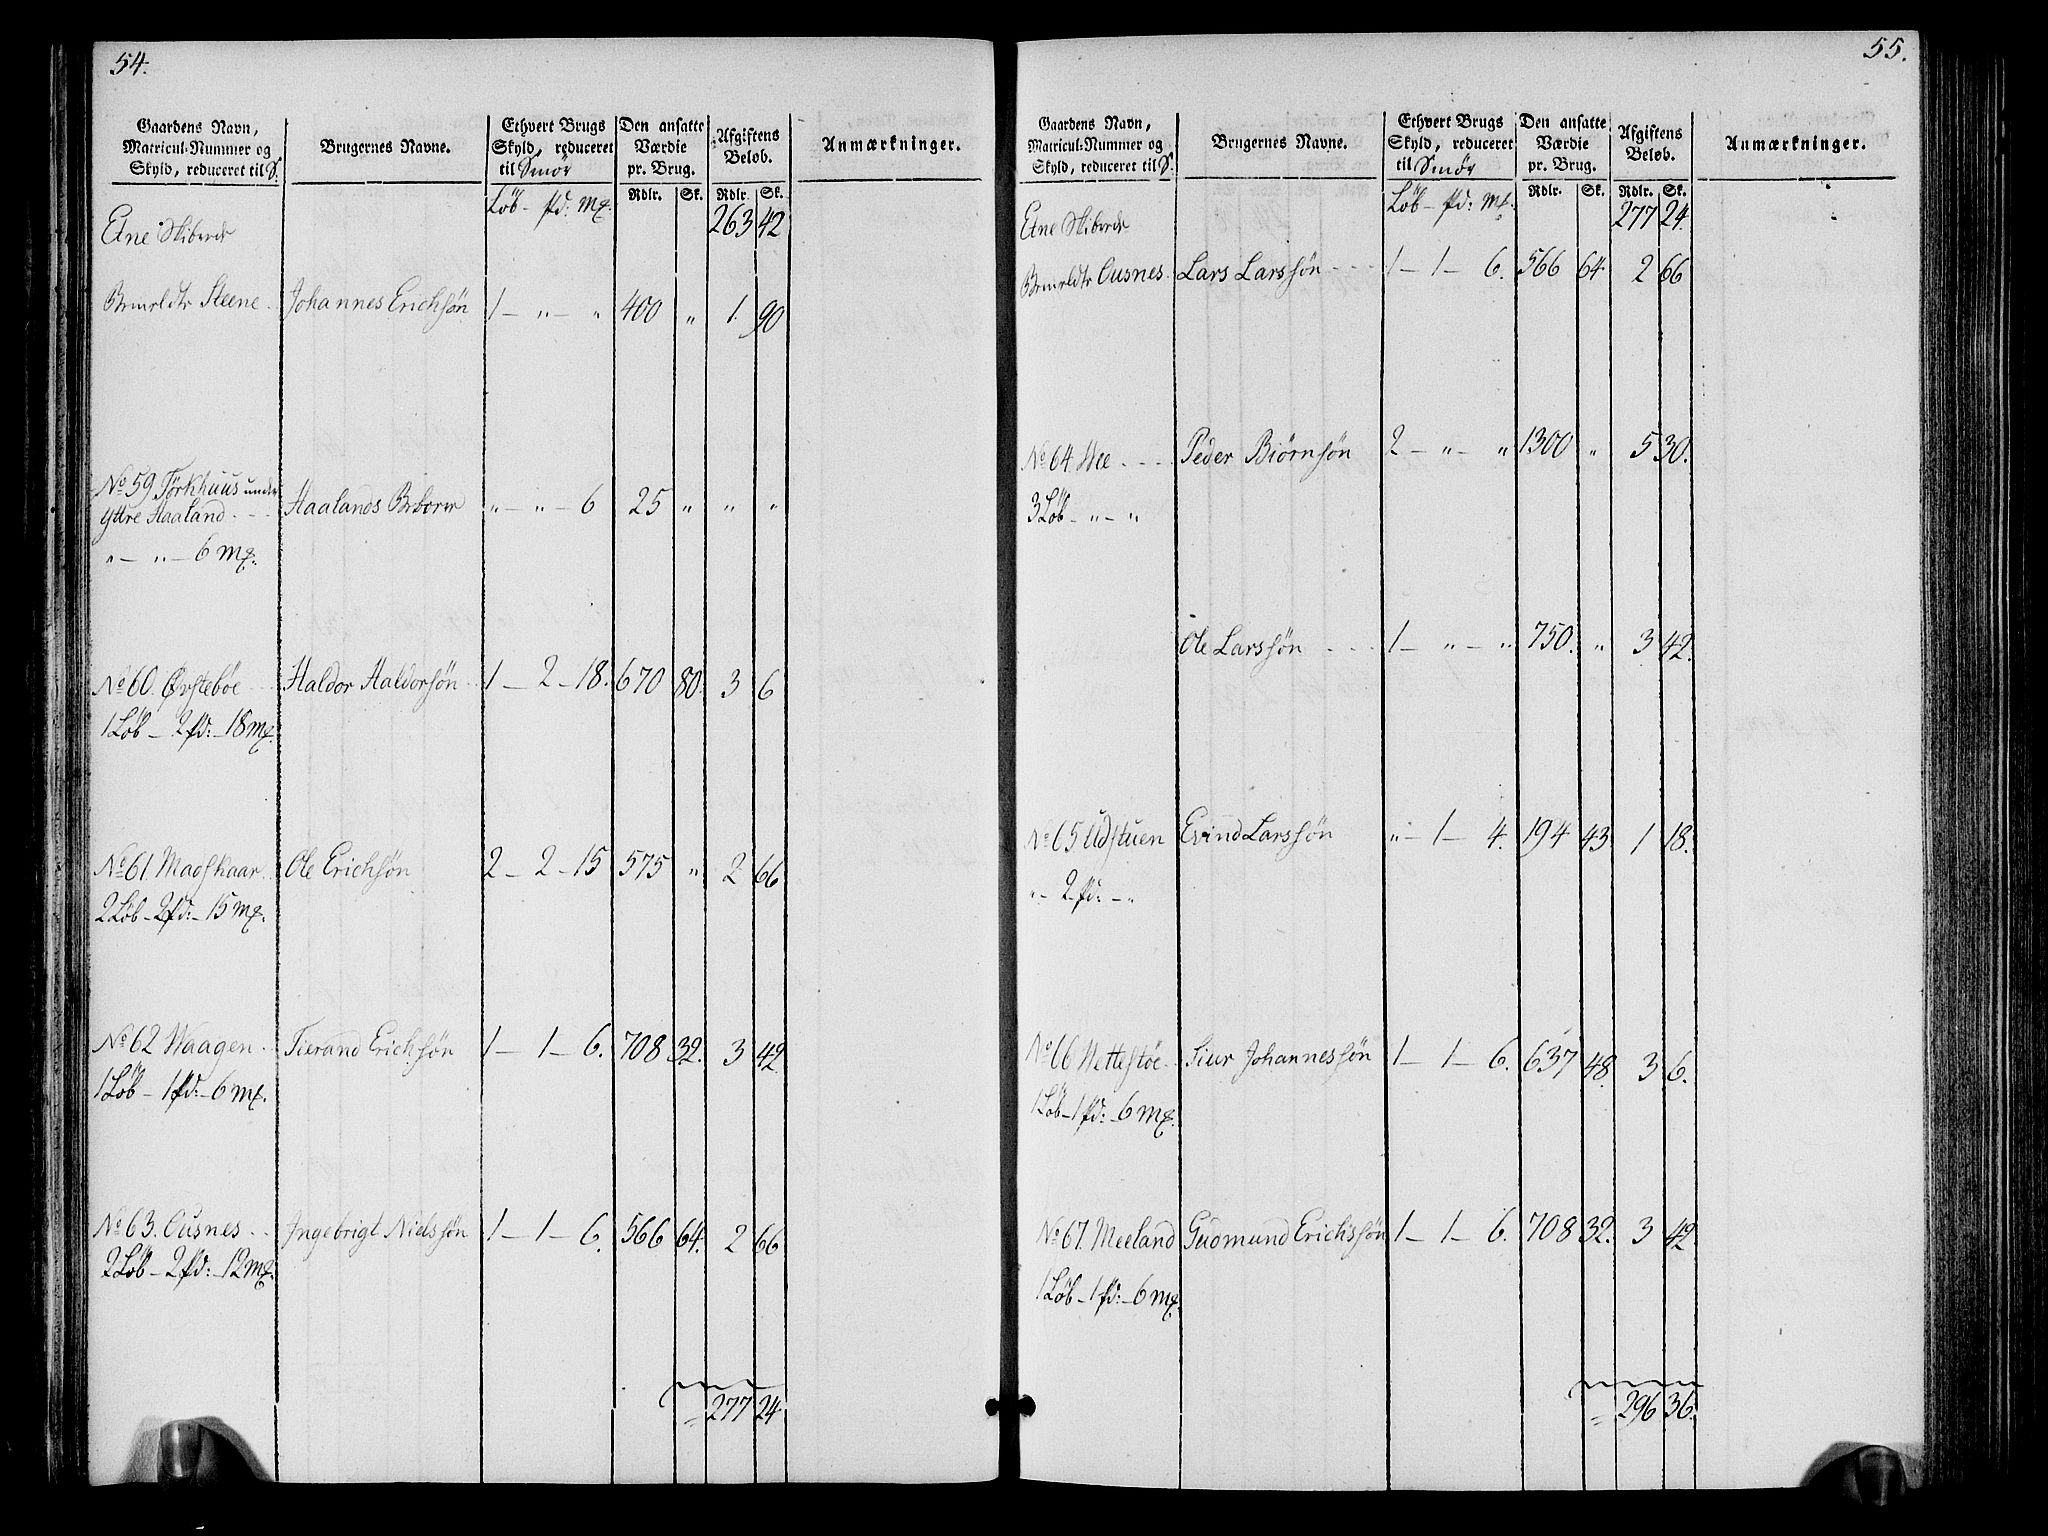 54.
Gaardens Navn, Matricul-Nummer og Skyld, reduceret til S. | Brugernes Navne. | Ethvert Brugs Skyld, reduceret til Smör | Den ansatte Værdie pr. Brug. | Afgiftens Beløb. | Anmærkninger.
Löb - pd: mk. | Rdlr. | Sk. | Rdlr. | Sk.
Etne Skibrede | 263 | 42
Steene | Johannes Erichsön | 1 - " - " | 400 | " | 1. | 90
No 59 Törkhuus under | Haalands | " - " - 6 | 25 | " | " | "
Yttre Haaland
" - " - 6 mk.
No 60. Örsteböe | Haldor Haldorsön | 1 - 2 - 18. | 670 | 80. | 3 | 6
1 Löb - 2 pd: - 18 mk.
No 61. Madskaar | Ole Erichsön | 2 - 2 - 15 | 575 | " | 2 | 66
2 Löb - 2 pd: - 15 mk.
No 62 Waagen | Tierand Erichsön | 1 - 1 - 6. | 708 | 32. | 3 | 42.
1 Löb - 1 pd: - 6 mk.
No 63. Ousnes | Ingebrigt Nielssön | 1 - 1 - 6. | 566 | 64. | 2 | 66
2 Löb - 2 pd: - 12 mk.
= 277 | 24.
55.
Gaardens Navn, Matricul-Nummer og Skyld, reduceret til S. | Brugernes Navne. | Ethvert Brugs Skyld, reduceret til Smör | Den ansatte Værdie pr. Brug. | Afgiftens Beløb. | Anmærkninger.
Löb - pd: mk. | Rdlr. | Sk. | Rdlr. | Sk.
Etne Skibrede | 277 | 24.
Ousnes | Lars Larssön | 1 - 1 - 6. | 566 | 64. | 2 | 66
No 64. Wee | Peder Biörnsön | 2 - " - " | 1300 | " | 5 | 30.
3 Löb - " - "
Ole Larssön | 1 - " - " | 750. | " | 3 | 42.
No 65 Udstuen | Evind Larssön | " - 1 - 4. | 194 | 43. | 1 | 18.
" - 2 pd: - "
No 66 Wettestöe | Siur Johannessön | 1 - 1 - 6. | 637 | 48. | 3 | 6.
1 Löb - 1 pd: - 6 mk.
No 67. Meeland | Gudmund Erichssön | 1 - 1 - 6. | 708 | 32. | 3 | 42
1 Löb - 1 pd: - 6 mk.
= 296 | 36.